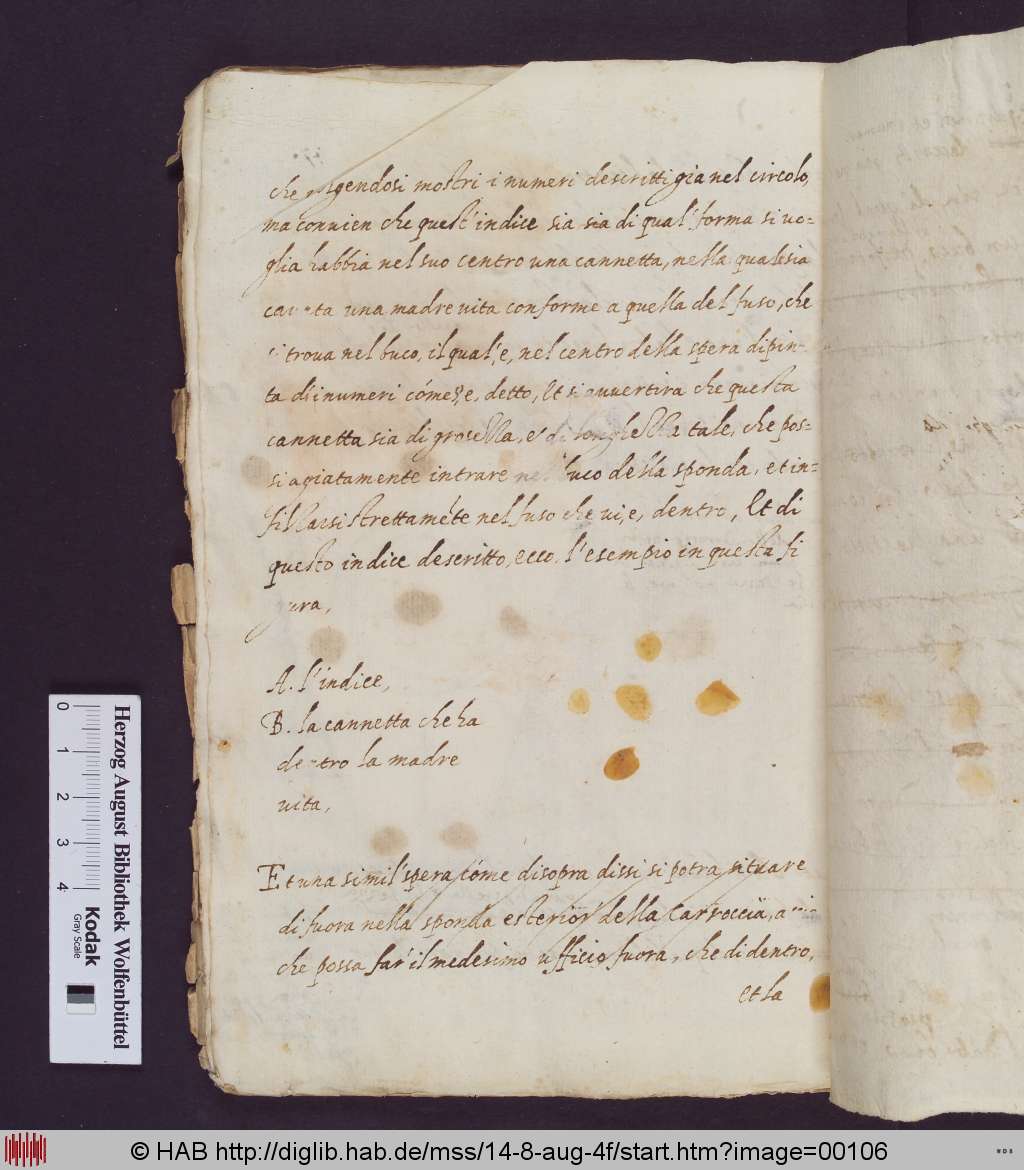 che gendosi mostri i numeri descritti gia nel circolo,
ma conuien che quest'indice sia sia di qual' forma si uo=
glia habbia nel suo centro una cannetta, nella quale sia
cauata una madre uita conforme a quella del fuso, che
si troua nel buco, il qual', e, nel centro della spera dipin=
ta di numeri cóme, e, detto, Et si auuertira che questa
cannetta sia di grosella, e di longhella tale, che pos=
si agiatamente intrare nel buco della sponda, et in=
strettaméte nel fuso che ui, e, dentro, Et di
questo indice descritto, ecco l'esempio in questa fi
gura,
A. l'indice,
B. la cannetta che ha
dentro la madre
uita,
Et una simil' spera cóme disopra dissi si potra situare
di fuora nella sponda esterior' della Carroccia,
che possa far' il medesimo ufficio fuora, che di dentro,
et la
Herzog August Bibliothek Wolfenbüttel
0 1 2 3 4
Kodak
Gray Scale
© HAB http://diglib.hab.de/mss/14-8-aug-4f/start.htm?image=00106